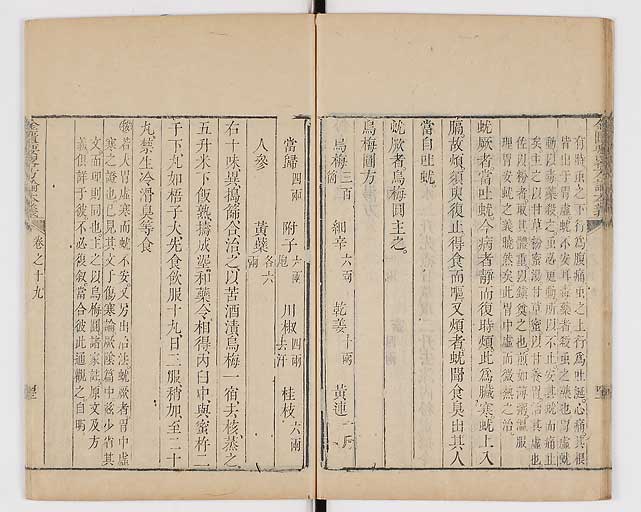 有時蟲之下行為腹痛蟲之上行為吐涎心痛其根
皆出于胃虛蚘不安耳毒藥者殺蟲之藥也胃虛蚘
動以毒藥殺之蟲必更動所以不止安其蚘而痛止
矣主之以甘草粉蜜湯甘草蜜以甘養胃治其虛也
佐以粉者取其體重以鎮奠之也煎如薄粥溫服
理胃安蚘之義曉然矣此胃中虛而微熱之治
蚘厥者當吐蚘今病者靜而復時煩此為臟寒蚘上入
膈故煩須臾復止得食而嘔又煩者蚘聞食臭出其人
當自吐蚘
蚘厥者烏梅圓主之
烏梅圓方
烏梅三百箇 細辛六兩 乾姜十兩 黃連一斤
當歸四兩 附子六兩炮 川椒四兩去汗 桂枝六兩
人參 黃蘗各六兩
右十味異搗篩合治之以苦酒漬烏梅一宿去核蒸之
五升米下飯熟搗成泥和藥令相得內臼中與蜜杵二
千下丸如梧子大先食飲服十丸日三服稍加至二十
丸禁生冷滑臭等食
若夫胃虛寒而蚘不安又另出治法蚘厥者胃中虛
寒之證也已見其文于傷寒論厥陰篇中茲少省其
文而理則同也主之以烏梅圓諸家註原文及方
義俱詳于彼不必復敘當合彼此通觀之自明
卷之十九